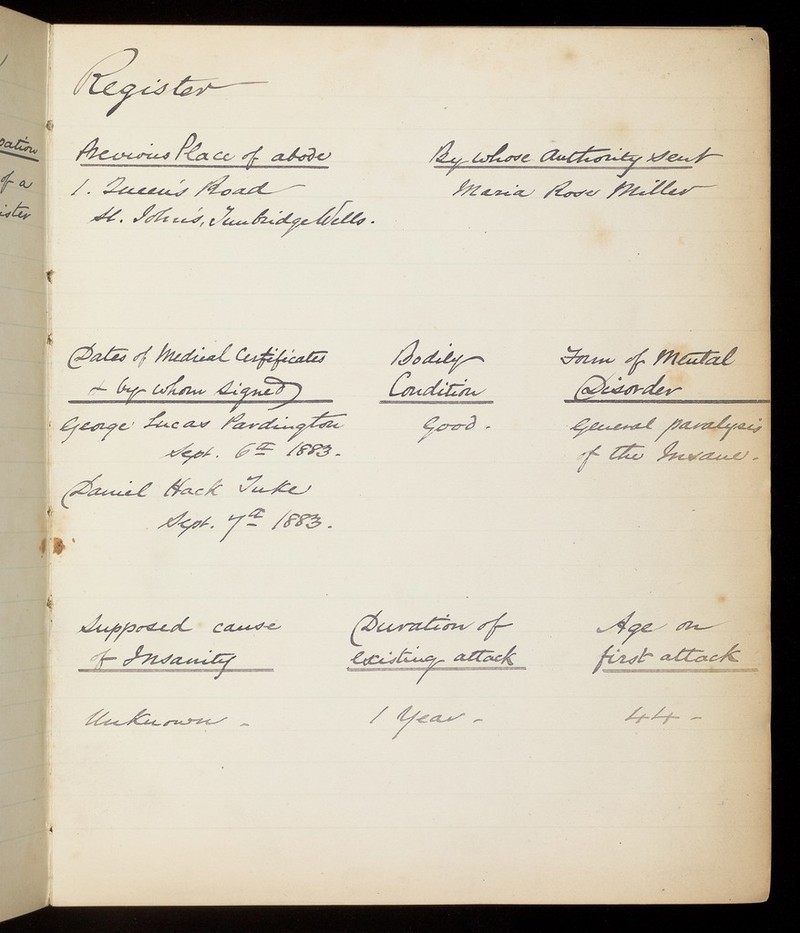 pation
of a
ister
Register
Previous Place of abode
1. Queen's Road
St. John's, Tunbridge Wells.
By whose Authority sent
Maria Rose Miller
Dates of Medical Certificates
& by whom signed
George Lucas Pardington
Sept. 6th 1883.
Daniel Hack Tuke
Sept. 7th 1883.
Bodily
Condition
Good.
Form of Mental
Disorder
General paralysis
of the Insane.
Supposed cause
of Insanity
Unknown -
Duration of
existing attack
1 Year -
Age on
first attack
44 -